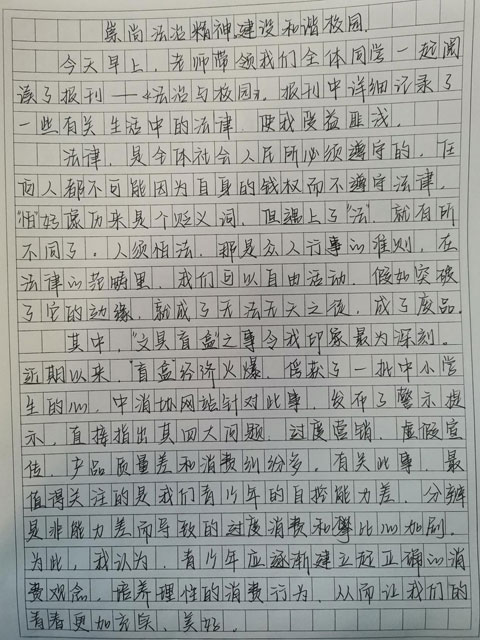 崇尚法治精神,建设和谐校园.
今天早上,老师带领我们全体同学一起阅
读了报刊——《法治与校园》,报刊中详细记录了
一些有关生活中的法律,使我受益匪浅.
法律,是全体社会人民所必须遵守的,任
何人都不可能因为自身的钱权而不遵守法律.
"怕"好像历来是个贬义词,但遇上了"法",就有所
不同了.人须怕法,那是众人行事的准则,在
法律的范畴里,我们可以自由活动,假如突破
了它的边缘,就成了无法无天之徒,成了废品.
其中,"文具盲盒"之事令我印象最为深刻.
近期以来,"盲盒"经济火爆,俘获了一批中小学
生的心,中消协网站针对此事,发布了警示提
示,直接指出其四大问题,过度营销,虚假宣
传,产品质量差和消费纠纷多,有关此事,最
值得关注的是我们青少年的自控能力差,分辨
是非能力差而导致的过度消费和攀比心加剧.
为此,我认为,青少年应逐渐建立起正确的消
费观念,培养理性的消费行为,从而让我们的
青春更加充实、美好.